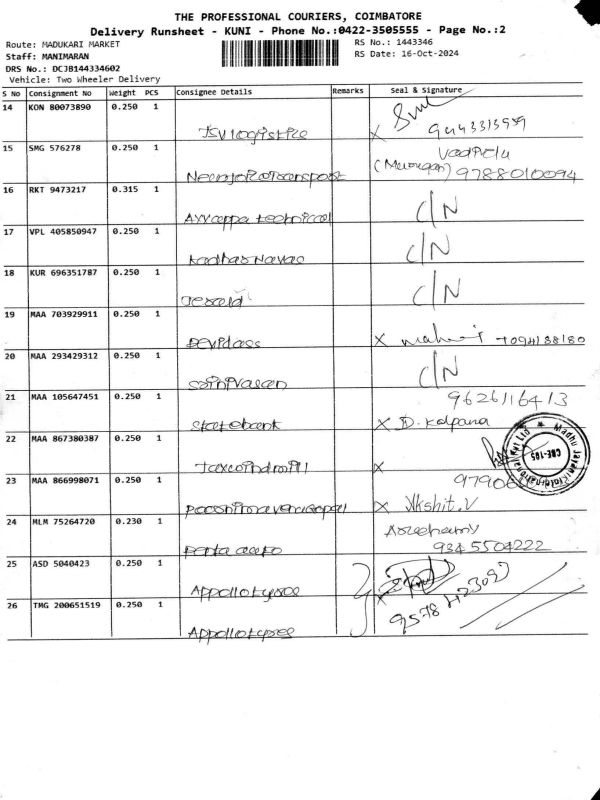 THE PROFESSIONAL COURIERS, COIMBATORE
Delivery Runsheet - KUNI - Phone No.:0422-3505555 - Page No.:2
Route: MADUKARI MARKET RS No.: 1443346
Staff: MANIMARAN RS Date: 16-Oct-2024
DRS No.: DCJB144334602
Vehicle: Two Wheeler Delivery
S No Consignment No Weight PCS Consignee Details Remarks Seal & Signature
14 KON 80073890 0.250 1
TSV logistice X
15 SMG 576278 0.250 1
(Murugan) 9788010094
16 RKT 9473217 0.315 1
Ayyappa technical C/N
17 VPL 405850947 0.250 1
Kadhar Navas C/N
18 KUR 696351787 0.250 1
Jerald C/N
19 MAA 703929911 0.250 1
Devidass X
20 MAA 293429312 0.250 1
Srinivasan C/N
21 MAA 105647451 0.250 1 9626116413
State bank X D. Kalpana
22 MAA 867380387 0.250 1
X
23 MAA 866998071 0.250 1
X Akshit.V
24 MLM 75264720 0.230 1
9345504222
25 ASD 5040423 0.250 1
Appollo tyres
26 TMG 200651519 0.250 1
Appollo tyres